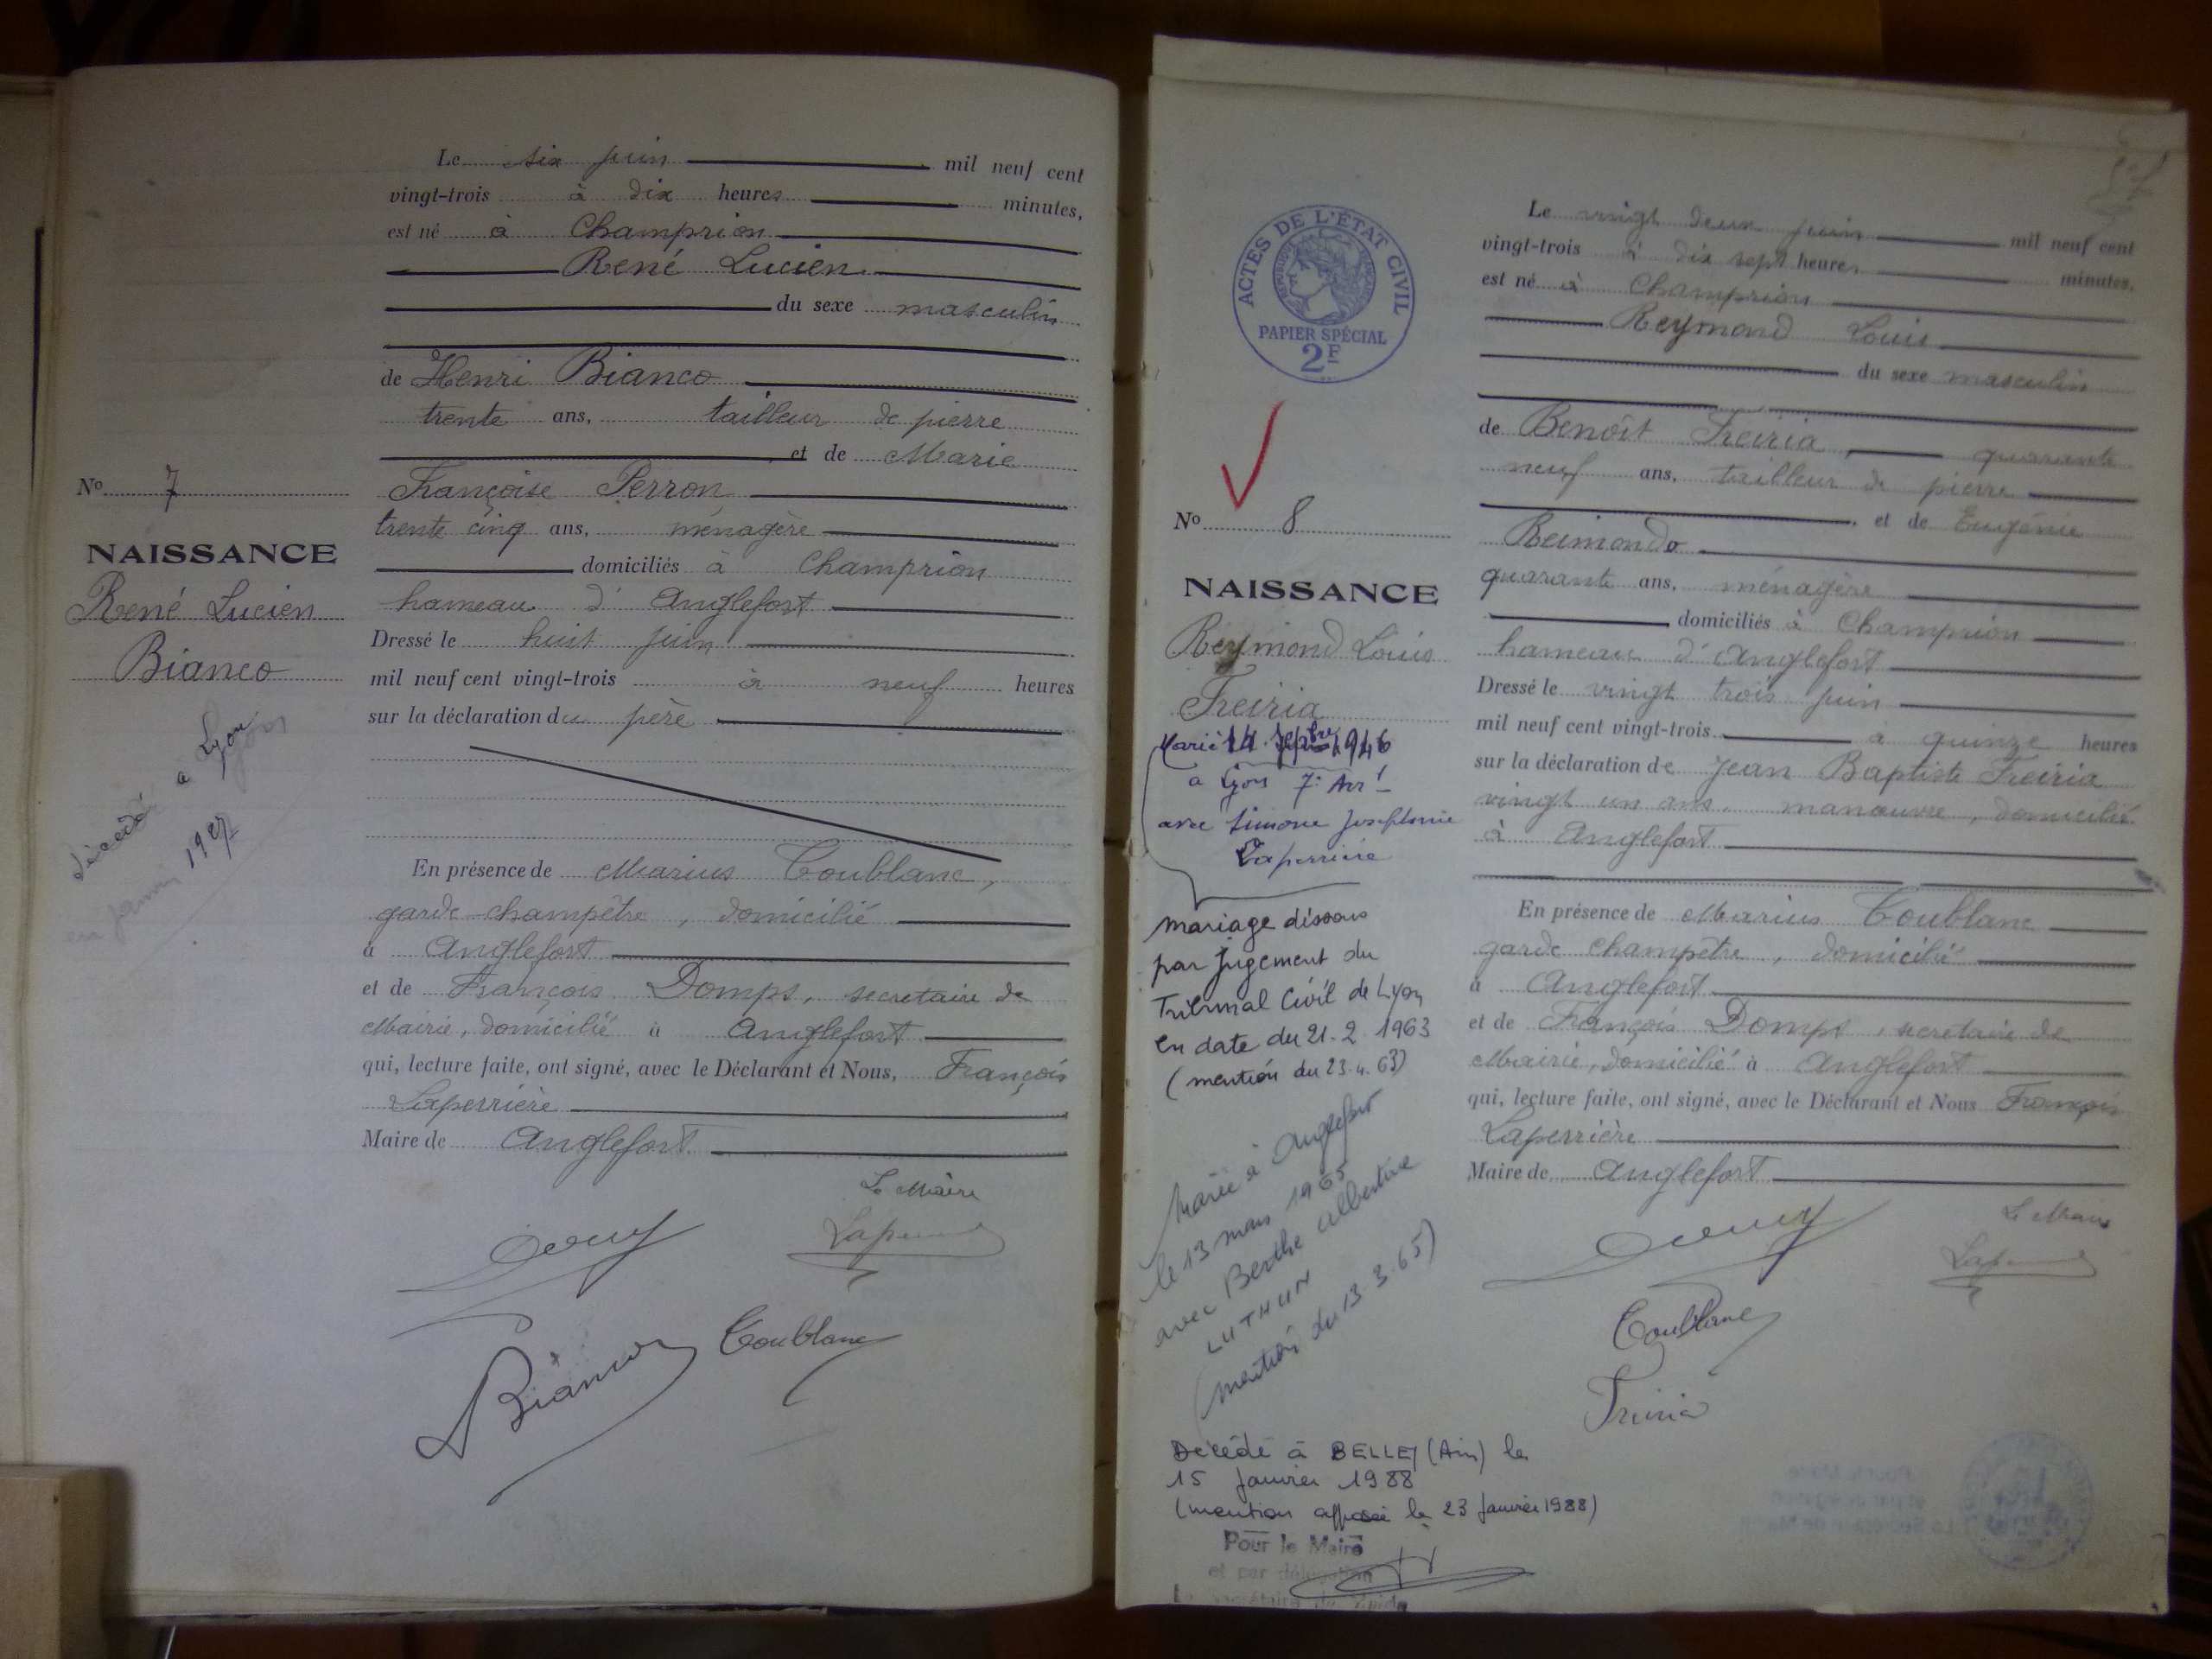 Le six juin mil neuf cent
vingt-trois à dix heures minutes,
est né à Champrion
René Lucien
du sexe masculin
de Henri Bianco
trente ans, tailleur de pierre
et de Marie
Françoise Perron
trente cinq ans, ménagère
domiciliés à Champrion
hameau d'Anglefort
Dressé le huit juin
mil neuf cent vingt-trois à neuf heures
sur la déclaration du père
En présence de Marius Coublanc,
garde-champêtre, domicilié
à Anglefort
et de François Domps, secretaire de
Mairie, domicilié à Anglefort
qui, lecture faite, ont signé, avec le Déclarant et Nous, François
Laperrière
Maire de Anglefort
Le Maire
Bianco
Coublanc
No 7
NAISSANCE
René Lucien
Bianco
décédé à Lyon
en 1927
ACTES DE L'ÉTAT CIVIL
PAPIER SPÉCIAL
2F
No 8
NAISSANCE
Reymond Louis
Freiria
Marié 14 Septbre 1946
à Lyon 7e Arrt
avec Simone Joséphine
Laperrière
mariage dissous
par jugement du
Tribunal Civil de Lyon
en date du 21.2.1963
(mention du 23.4.63)
Marié à Anglefort
le 13 mars 1965
avec Berthe Albertine
LUTHUN
(mention du 13.3.65)
Décédé à BELLEY (Ain) le
15 Janvier 1988
(mention apposée le 23 Janvier 1988)
Pour le Maire
et par délégation
Le vingt deux juin mil neuf cent
vingt-trois à dix sept heures minutes,
est né à Champrion
Reymond Louis
du sexe masculin
de Benoît Freiria quarante
neuf ans, tailleur de pierre
et de Eugénie
Reimondo
quarante ans, ménagère
domiciliés à Champrion
hameau d'Anglefort
Dressé le vingt trois juin
mil neuf cent vingt-trois à quinze heures
sur la déclaration de Jean Baptiste Freiria
vingt un ans, manœuvre, domicilié
à Anglefort
En présence de Marius Coublanc
garde champêtre, domicilié
à Anglefort
et de François Domps, secretaire de
Mairie, domicilié à Anglefort
qui, lecture faite, ont signé, avec le Déclarant et Nous François
Laperrière
Maire de Anglefort
Le Maire
Coublanc
Freiria